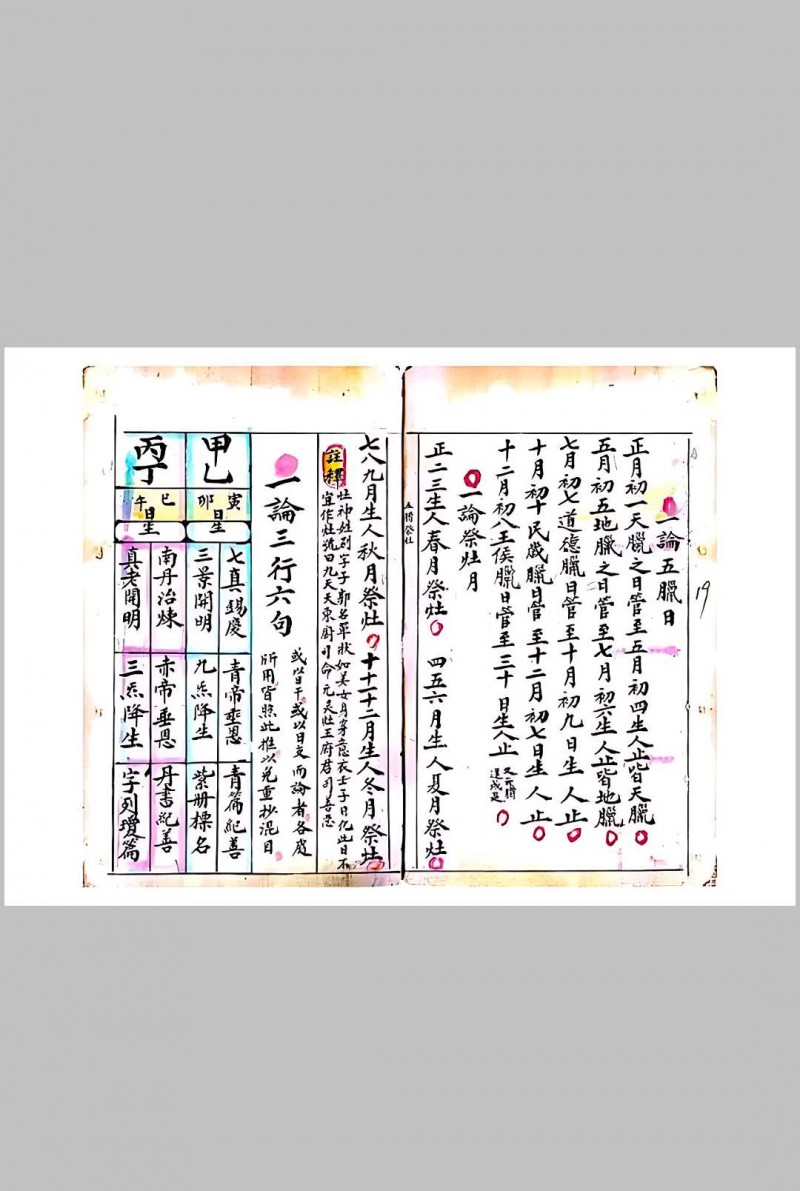 一論五臘日
正月初一天臘之日管至五月初四生人止皆天臘
五月初五地臘之日管至七月初六生人止皆地臘
七月初七道德臘日管至十月初九日生人止
十月初十民歲臘日管至十二月初七日生人止
十二月初八王侯臘日管至三十日生人止
一論祭灶月
正二三生人春月祭灶 四五六月生人夏月祭灶
七八九月生人秋月祭灶 十十一十二月生人冬月祭灶
註釋
灶神姓列字子郭名單狀如美女身穿意衣士子日化此日不
宜作灶號曰九天天東厨司命元灵灶王府君司善恶
一論三行六句
或以日干或以日支而論者各處
所用皆照此推以免重抄混目
甲乙
寅卯日生
七真錫慶 青帝垂恩 青篇紀善
三景開明 九炁降生 紫册標名
丙丁
巳午日生
南丹冶煉 赤帝垂恩 丹書紀善
真老開明 三炁降生 字列瓊篇
19